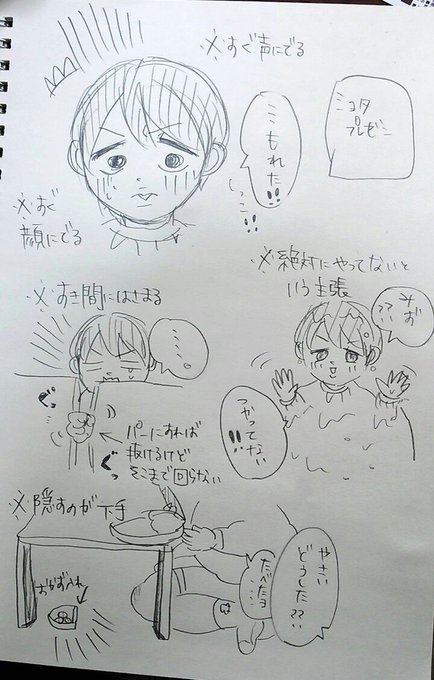 ※すぐ声にでる
ショタ
プレゼン
もれた!!
しっこ!!
※すぐ
顔にでる
※絶対にやってないと
いう主張
※すき間にはさまる
……
つかってない
!!
パーにすれば
抜けるけど
そこまで回らない
※隠すのが下手
やさい
どうした??
たべたヨ
……
おかず入れ